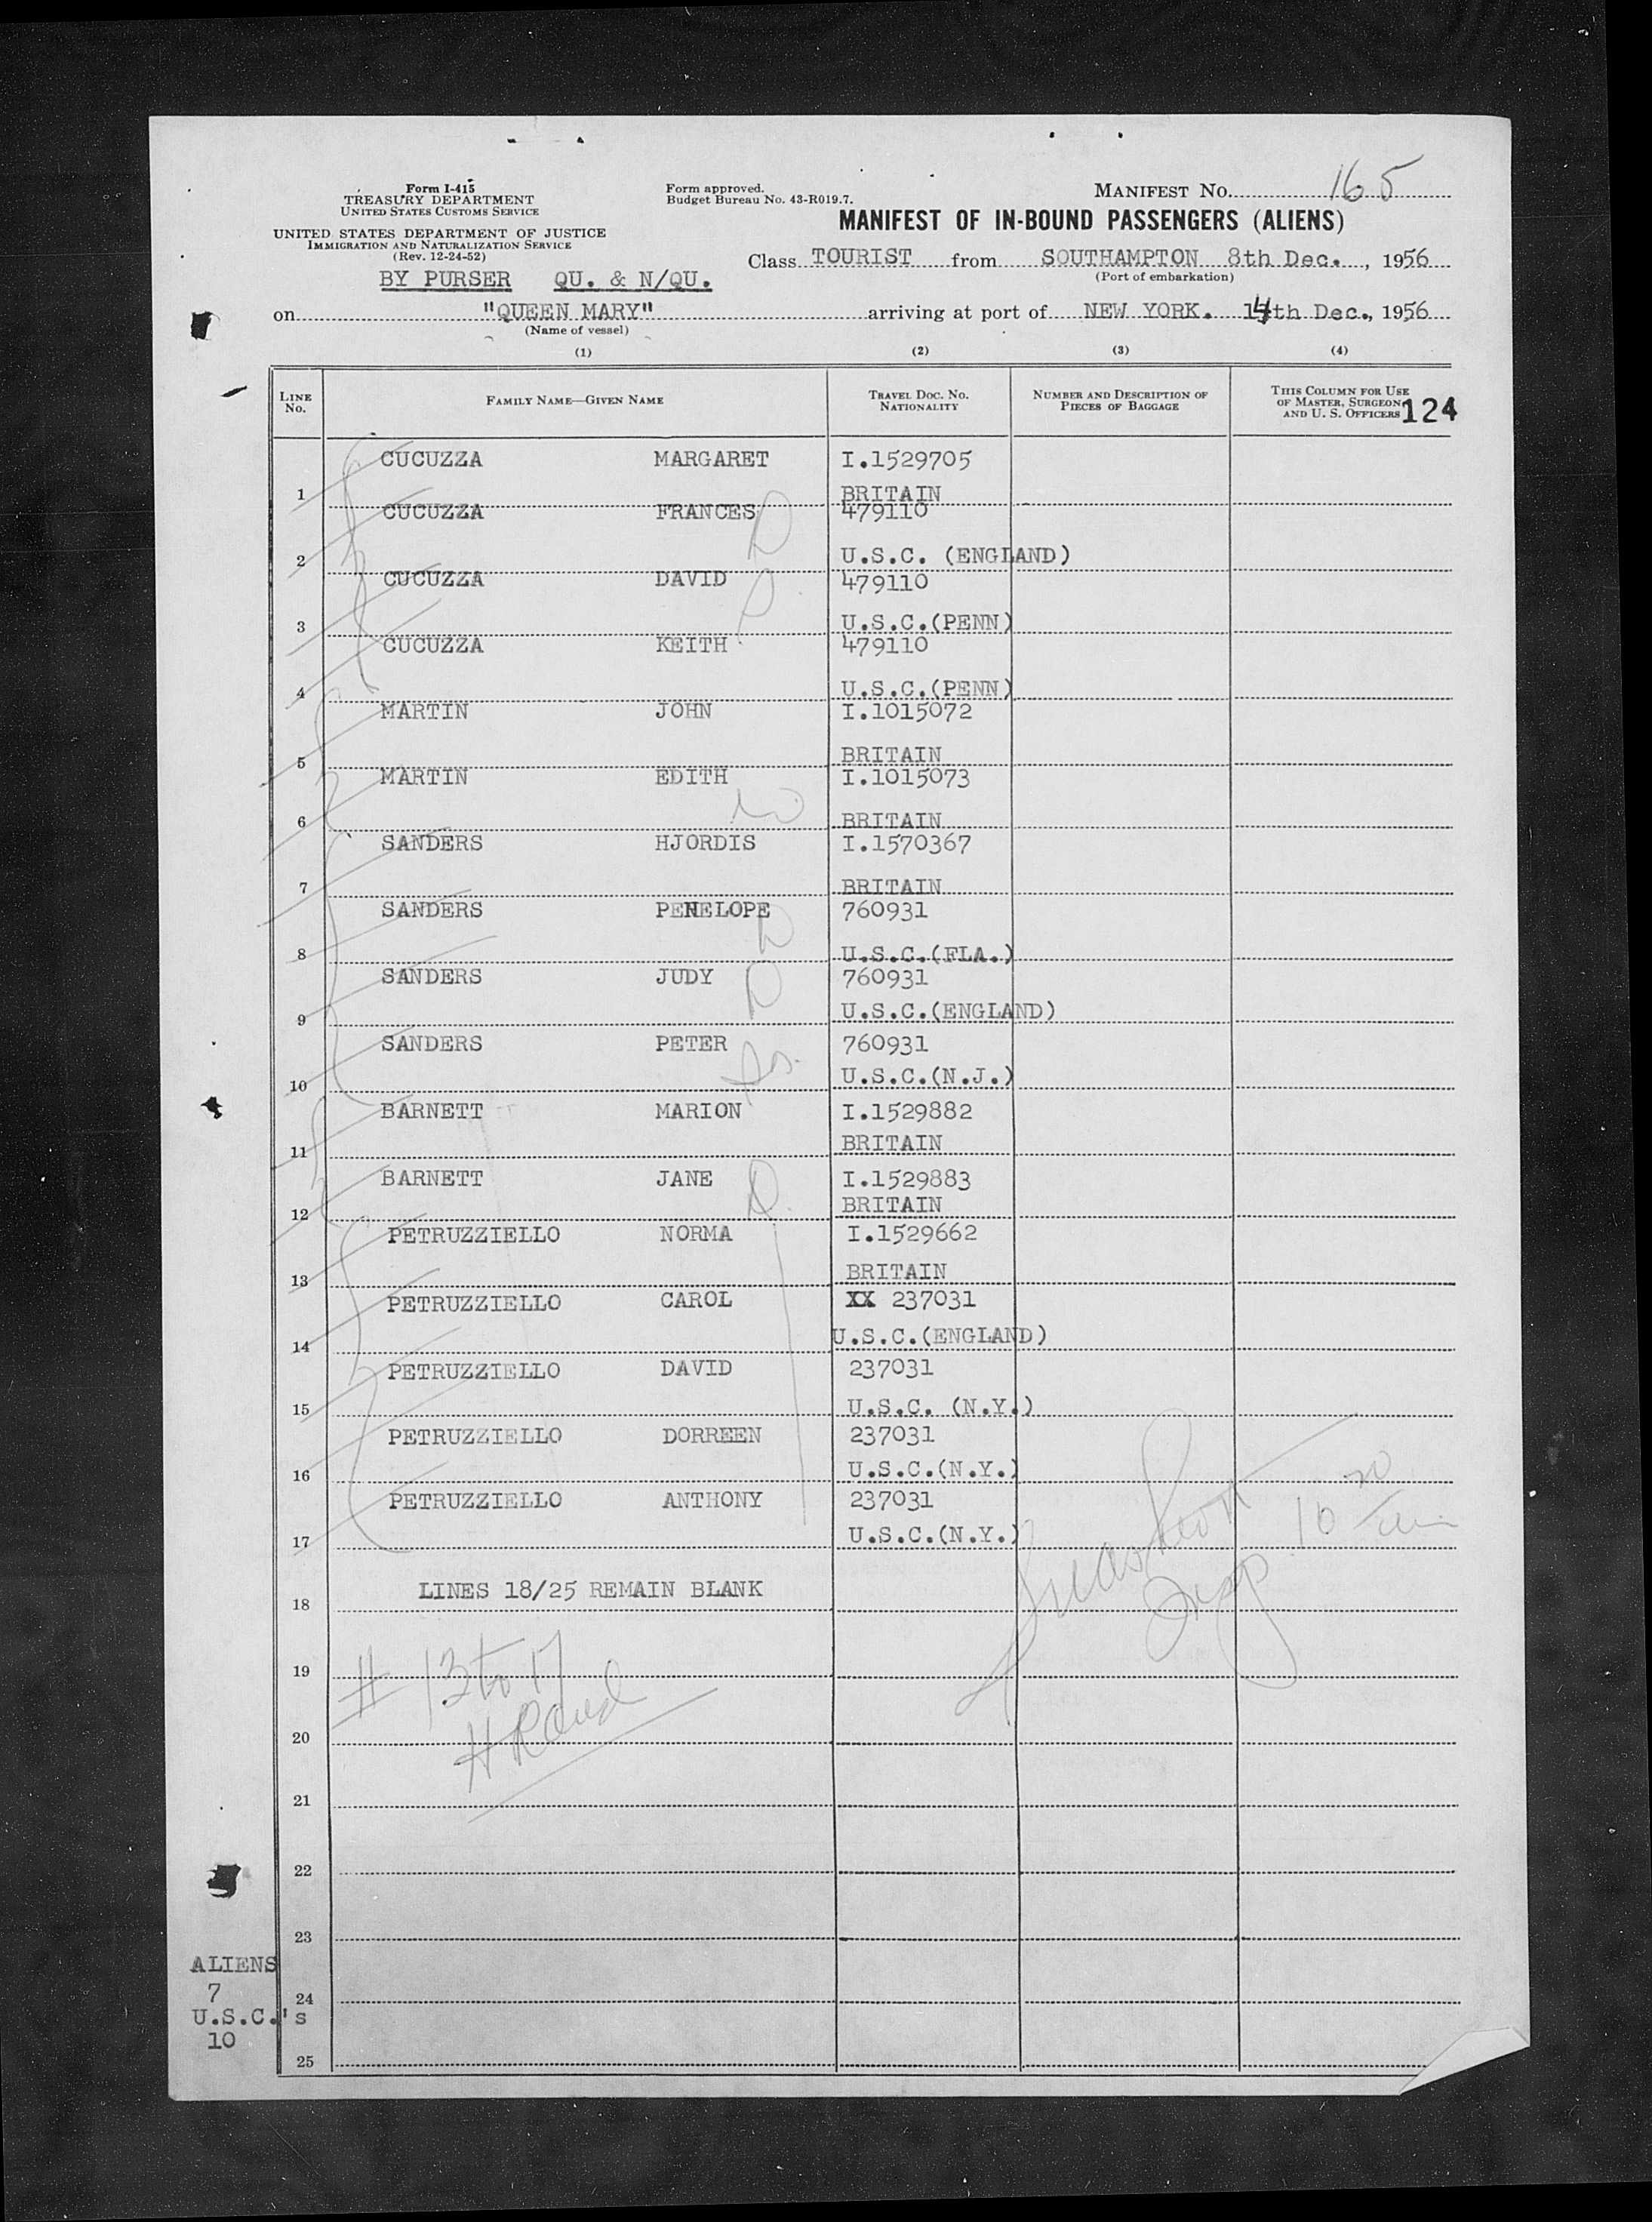 Form I-415
TREASURY DEPARTMENT
UNITED STATES CUSTOMS SERVICE
UNITED STATES DEPARTMENT OF JUSTICE
IMMIGRATION AND NATURALIZATION SERVICE
(Rev. 12-24-52)
Form approved.
Budget Bureau No. 43-R019.7.
MANIFEST No. 165
MANIFEST OF IN-BOUND PASSENGERS (ALIENS)
BY PURSER QU. & N/QU.
Class TOURIST from SOUTHAMPTON 8th Dec. , 1956
(Port of embarkation)
on "QUEEN MARY" arriving at port of NEW YORK. 14th Dec., 1956
(Name of vessel)
(1) (2) (3) (4)
LINE No. FAMILY NAME—GIVEN NAME TRAVEL DOC. No. NATIONALITY NUMBER AND DESCRIPTION OF PIECES OF BAGGAGE THIS COLUMN FOR USE OF MASTER, SURGEON AND U. S. OFFICERS 124
CUCUZZA MARGARET I.1529705
1 BRITAIN
CUCUZZA FRANCES 479110
2 U.S.C. (ENGLAND)
CUCUZZA DAVID 479110
3 U.S.C.(PENN)
CUCUZZA KEITH 479110
4 U.S.C.(PENN)
MARTIN JOHN I.1015072
5 BRITAIN
MARTIN EDITH I.1015073
6 BRITAIN
SANDERS HJORDIS I.1570367
7 BRITAIN
SANDERS PENELOPE 760931
8 U.S.C.(FLA.)
SANDERS JUDY 760931
9 U.S.C.(ENGLAND)
SANDERS PETER 760931
10 U.S.C.(N.J.)
BARNETT MARION I.1529882
11 BRITAIN
BARNETT JANE I.1529883
12 BRITAIN
PETRUZZIELLO NORMA I.1529662
13 BRITAIN
PETRUZZIELLO CAROL XX 237031
14 U.S.C.(ENGLAND)
PETRUZZIELLO DAVID 237031
15 U.S.C. (N.Y.)
PETRUZZIELLO DORREEN 237031
16 U.S.C.(N.Y.)
PETRUZZIELLO ANTHONY 237031
17 U.S.C.(N.Y.)
LINES 18/25 REMAIN BLANK
18
19
# 13 to 17
20
21
22
23
ALIENS
7
24
U.S.C.'s
10
25